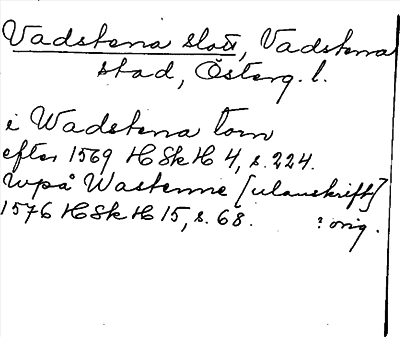 Vadstena slott, Vadstena
stad, Österg. l.
i Wadstena torn
efter 1569 HSkH 4, s. 224.
Wpå Wastenne [utanskrift]
1576 HSkH 15, s. 68. ? orig.